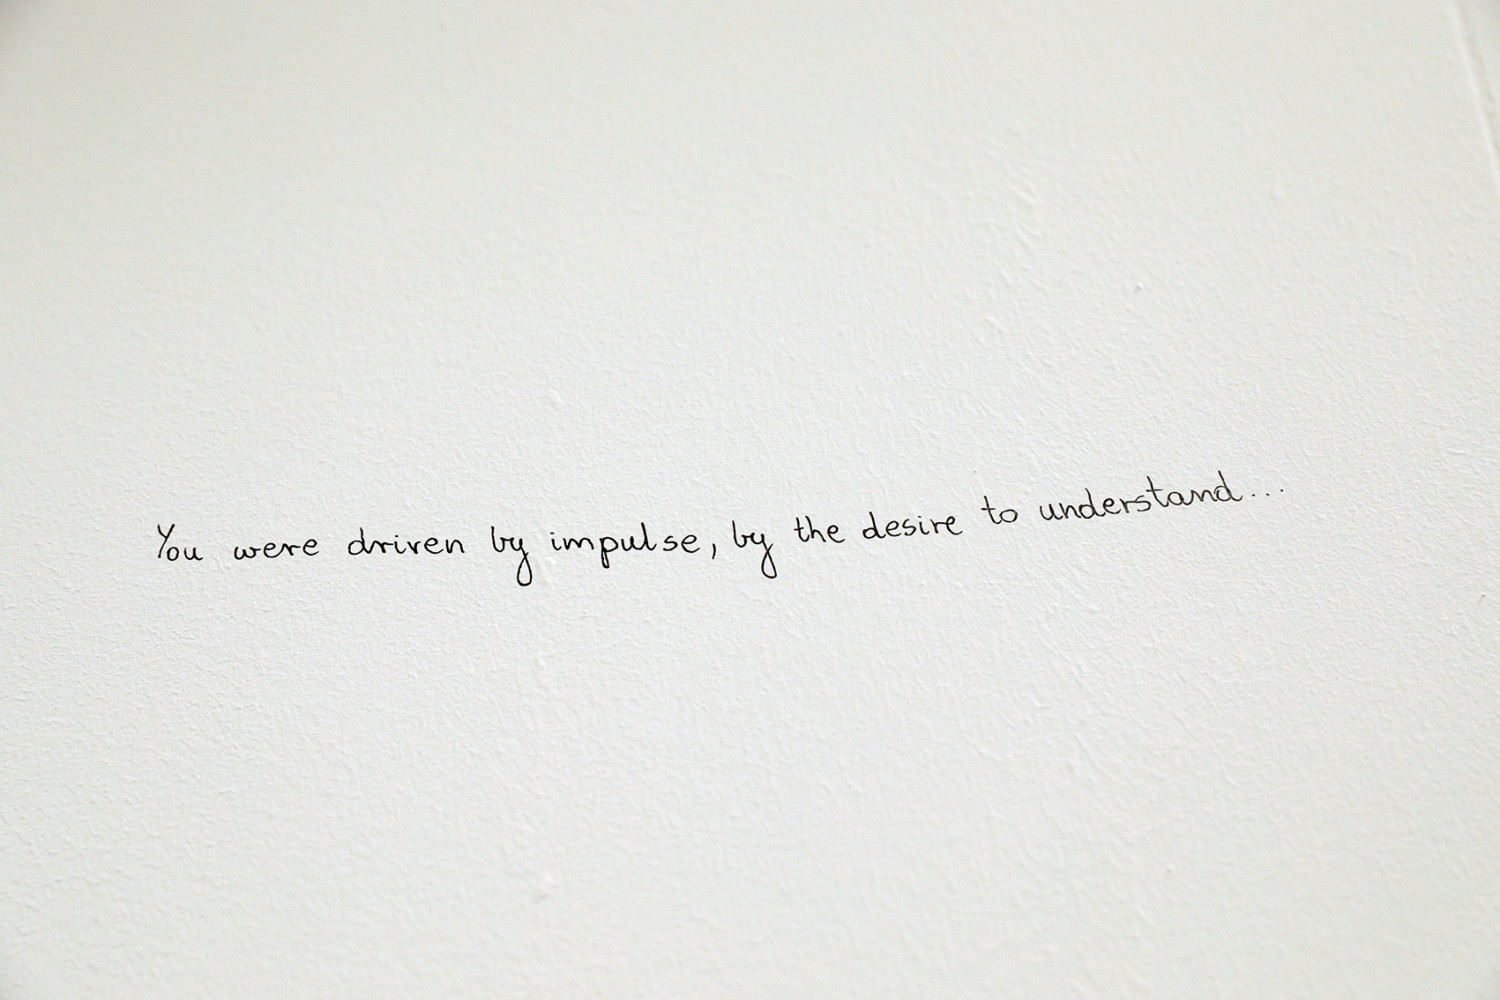 You were driven by impulse, by the desire to understand...